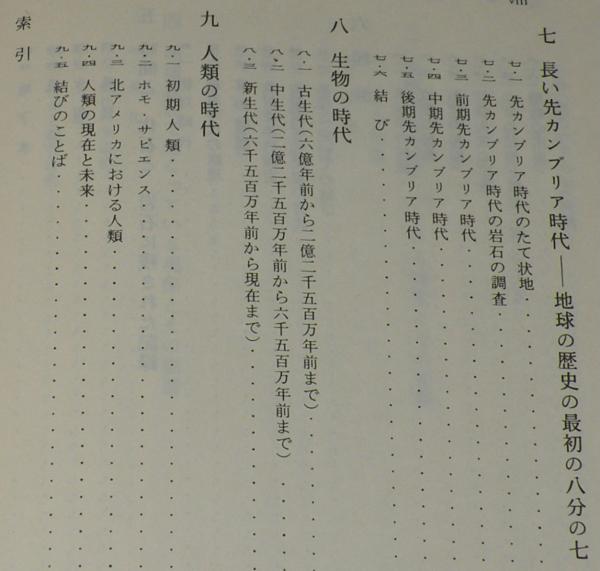 viii
七 長い先カンブリア時代――地球の歴史の最初の八分の七
七・一 先カンブリア時代のたて状地
七・二 先カンブリア時代の岩石の調査
七・三 前期先カンブリア時代
七・四 中期先カンブリア時代
七・五 後期先カンブリア時代
七・六 結び
八 生物の時代
八・一 古生代(六億年前から二億二千五百万年前まで)
八・二 中生代(二億二千五百万年前から六千五百万年前まで)
八・三 新生代(六千五百万年前から現在まで)
九 人類の時代
九・一 初期人類
九・二 ホモ・サピエンス
九・三 北アメリカにおける人類
九・四 人類の現在と未来
九・五 結びのことば
索引